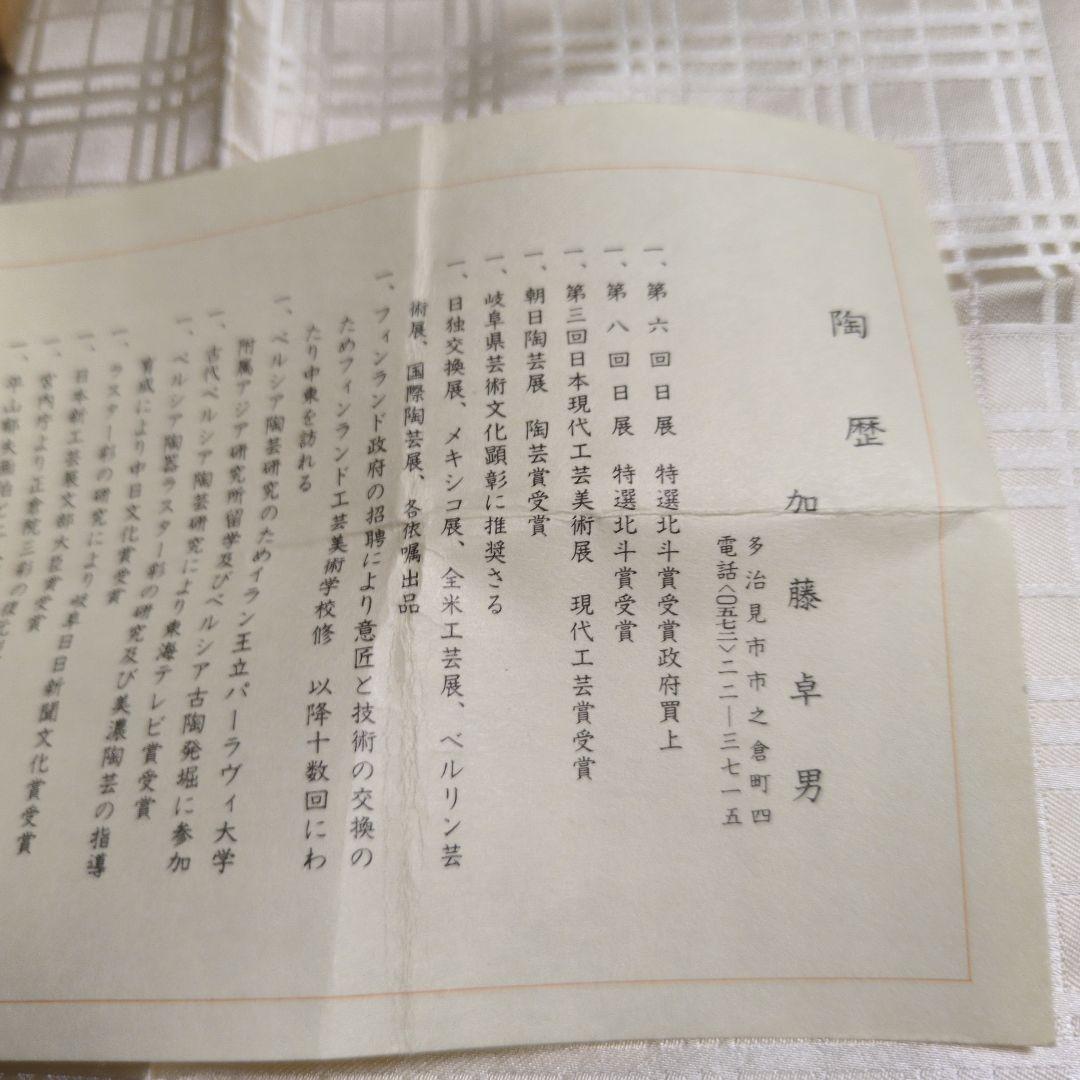 陶歴
加藤卓男
多治見市市之倉町四
電話〈〇五七二〉二二―三七一五
一、第六回日展 特選北斗賞受賞政府買上
一、第八回日展 特選北斗賞受賞
一、第三回日本現代工芸美術展 現代工芸賞受賞
一、朝日陶芸展 陶芸賞受賞
一、岐阜県芸術文化顕彰に推奨さる
一、日独交換展、メキシコ展、全米工芸展、ベルリン芸
術展、国際陶芸展、各依嘱出品
一、フィンランド政府の招聘により意匠と技術の交換の
ためフィンランド工芸美術学校修 以降十数回にわ
たり中東を訪れる
一、ペルシア陶芸研究のためイラン王立パーラヴィ大学
附属アジア研究所留学及びペルシア古陶発堀に参加
一、古代ペルシア陶芸研究により東海テレビ賞受賞
一、ペルシア陶器ラスター彩の研究及び美濃陶芸の指導
育成により中日文化賞受賞
一、ラスター彩の研究により岐阜日日新聞文化賞受賞
一、日本新工芸展文部大臣賞受賞
一、宮内庁より正倉院三彩の